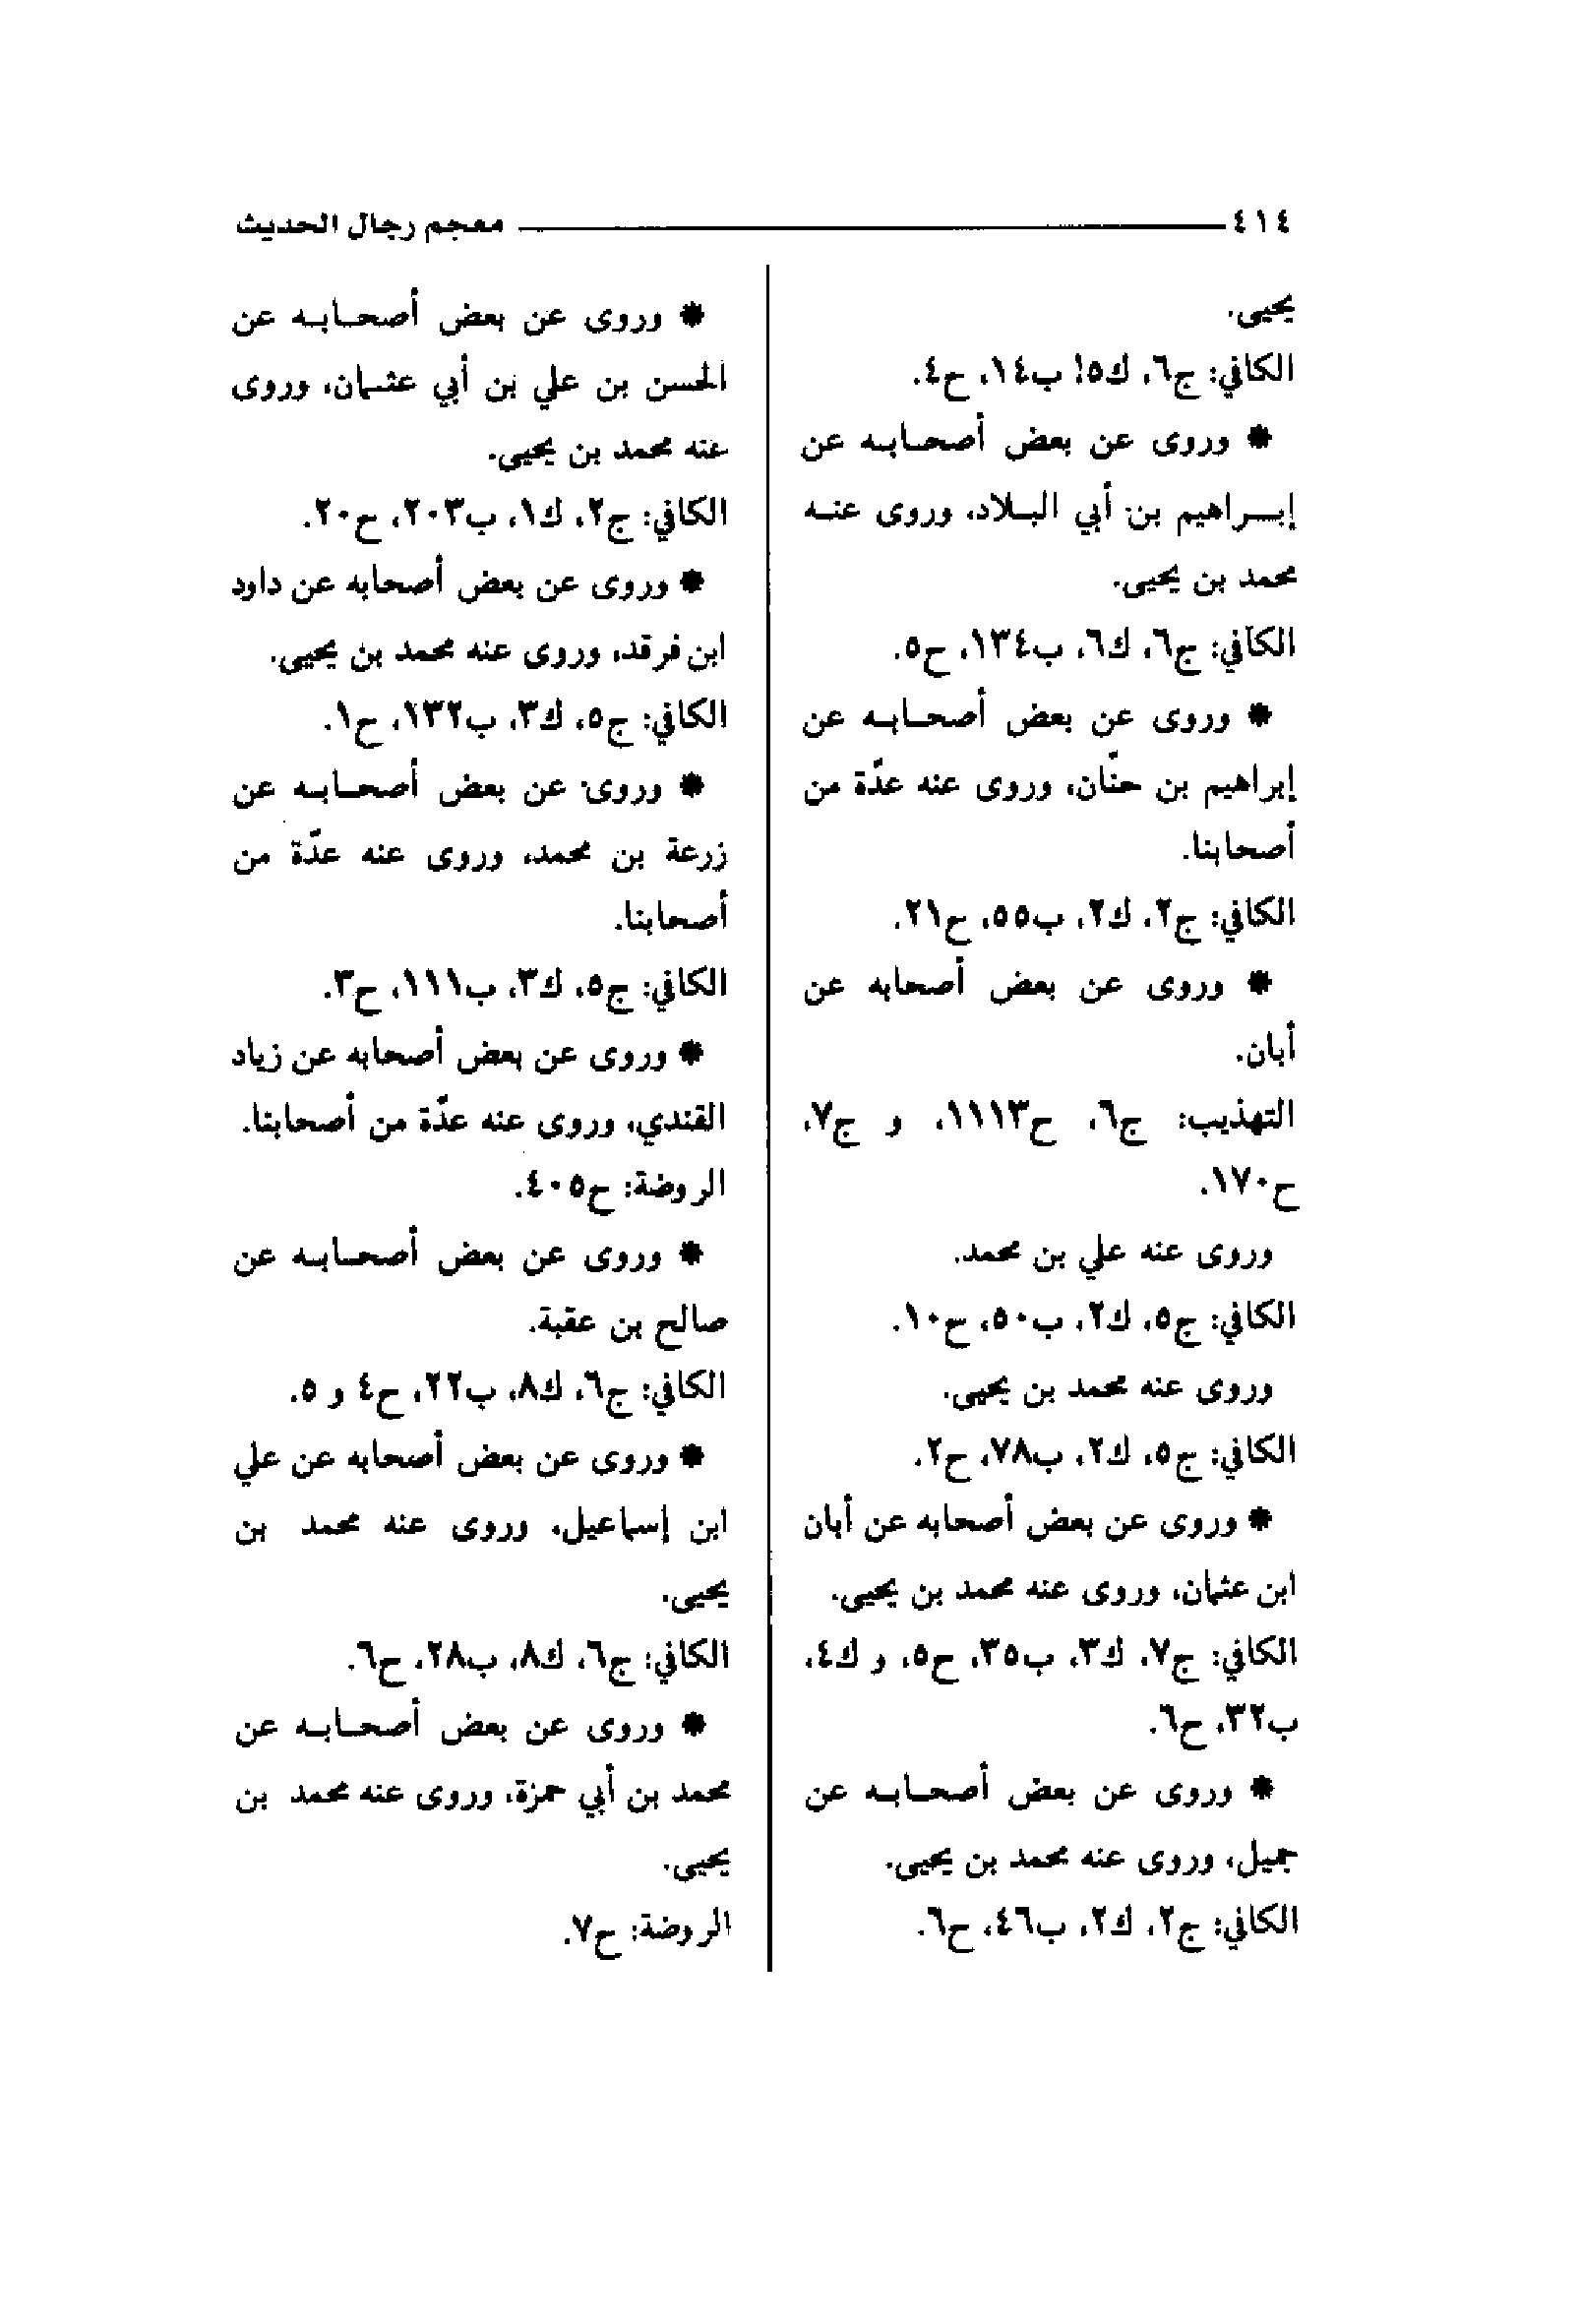 ٤١٤ معجم رجال الحديث
يحيى.
الكافي: ج٦، ك٥! ب١٤، ح٤.
* وروى عن بعض أصحابه عن
إبراهيم بن أبي البلاد، وروى عنه
محمد بن يحيى.
الكافي: ج٦، ك٦، ب١٣٤، ح٥.
* وروى عن بعض أصحابه عن
إبراهيم بن حنّان، وروى عنه عدّة من
أصحابنا.
الكافي: ج٢، ك٢، ب٥٥، ح٢١.
* وروى عن بعض أصحابه عن
أبان.
التهذيب: ج٦، ح١١١٣، و ج٧،
ح١٧٠.
وروى عنه علي بن محمد.
الكافي: ج٥، ك٢، ب٥٠، ح١٠.
وروى عنه محمد بن يحيى.
الكافي: ج٥، ك٢، ب٧٨، ح٢.
* وروى عن بعض أصحابه عن أبان
ابن عثمان، وروى عنه محمد بن يحيى.
الكافي: ج٧، ك٣، ب٣٥، ح٥، و ك٤،
ب٣٢، ح٦.
* وروى عن بعض أصحابه عن
جميل، وروى عنه محمد بن يحيى.
الكافي: ج٢، ك٢، ب٤٦، ح٦.
* وروى عن بعض أصحابه عن
الحسن بن علي بن أبي عثمان، وروى
عنه محمد بن يحيى.
الكافي: ج٢، ك١، ب٢٠٣، ح٢٠.
* وروى عن بعض أصحابه عن داود
ابن فرقد، وروى عنه محمد بن يحيى.
الكافي: ج٥، ك٣، ب١٣٢، ح١.
* وروى عن بعض أصحابه عن
زرعة بن محمد، وروى عنه عدّة من
أصحابنا.
الكافي: ج٥، ك٣، ب١١١، ح٣.
* وروى عن بعض أصحابه عن زياد
القندي، وروى عنه عدّة من أصحابنا.
الروضة: ح٤٠٥.
* وروى عن بعض أصحابه عن
صالح بن عقبة.
الكافي: ج٦، ك٨، ب٢٢، ح٤ و ٥.
* وروى عن بعض أصحابه عن علي
ابن إسماعيل، وروى عنه محمد بن
يحيى.
الكافي: ج٦، ك٨، ب٢٨، ح٦.
* وروى عن بعض أصحابه عن
محمد بن أبي حمزة، وروى عنه محمد بن
يحيى.
الروضة: ح٧.